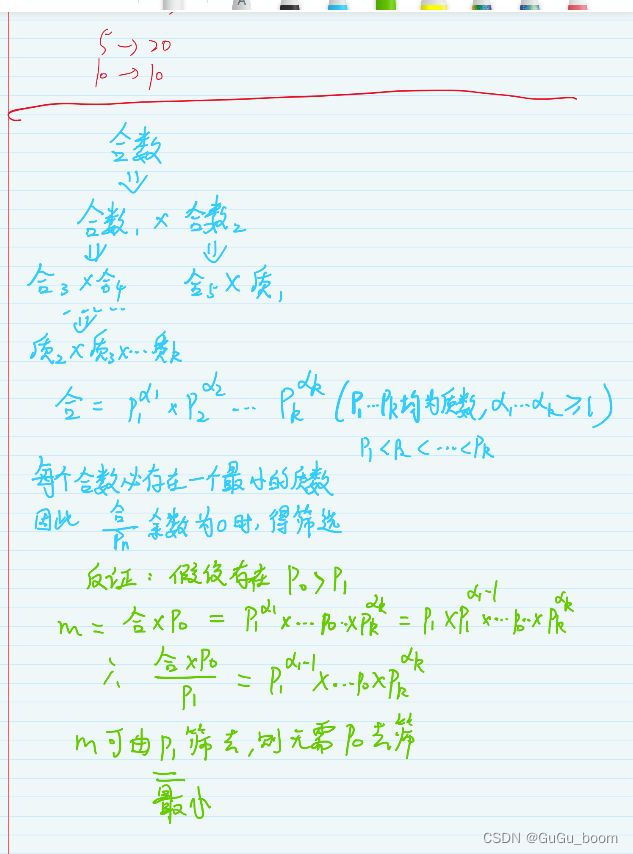 5 → 20
10 → 10
合数
⇓
合数₁ × 合数₂
⇓ ⇓
合₃ × 合₄ 合₅ × 质₁
⇓
质₂ × 质₃ × … 质k
合 = P₁^α₁ × P₂^α₂ … Pk^αk (P₁…Pk均为质数, α₁…αk ≥ 1)
P₁ < P₂ < … < Pk
每个合数必存在一个最小的质数
因此 合/Pn 余数为0时, 得筛选
反证: 假设存在 P₀ > P₁
m = 合×P₀ = P₁^α₁ ×…P₀…×Pk^αk = P₁ × P₁^(α₁-1) ×…P₀…×Pk^αk
∴ 合×P₀/P₁ = P₁^(α₁-1) ×…P₀×Pk^αk
m可由P₁筛去, 则无需P₀去筛
最小
CSDN @GuGu_boom